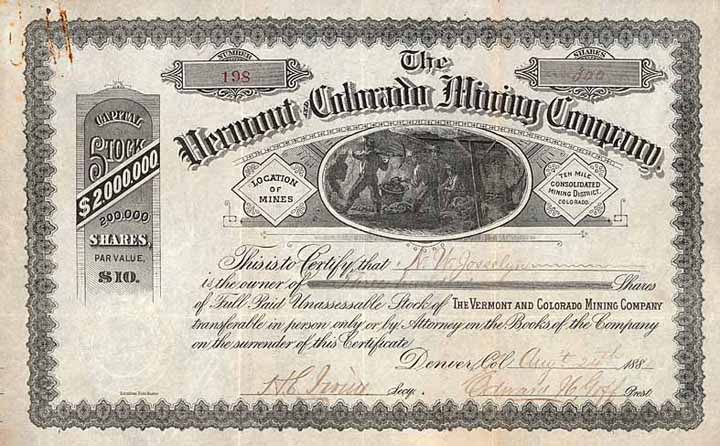 NUMBER
198
SHARES
300
The
Vermont and Colorado Mining Company
CAPITAL
STOCK
$2,000,000
200,000
SHARES,
PAR VALUE,
$10.
LOCATION
OF
MINES
TEN MILE
CONSOLIDATED
MINING DISTRICT,
COLORADO.
This is to Certify, that
is the owner of Shares
of Full Paid Unassessable Stock of THE VERMONT AND COLORADO MINING COMPANY
transferable in person only or by Attorney on the Books of the Company
on the surrender of this Certificate
Denver, Col. Aug 188
Secy. Prest